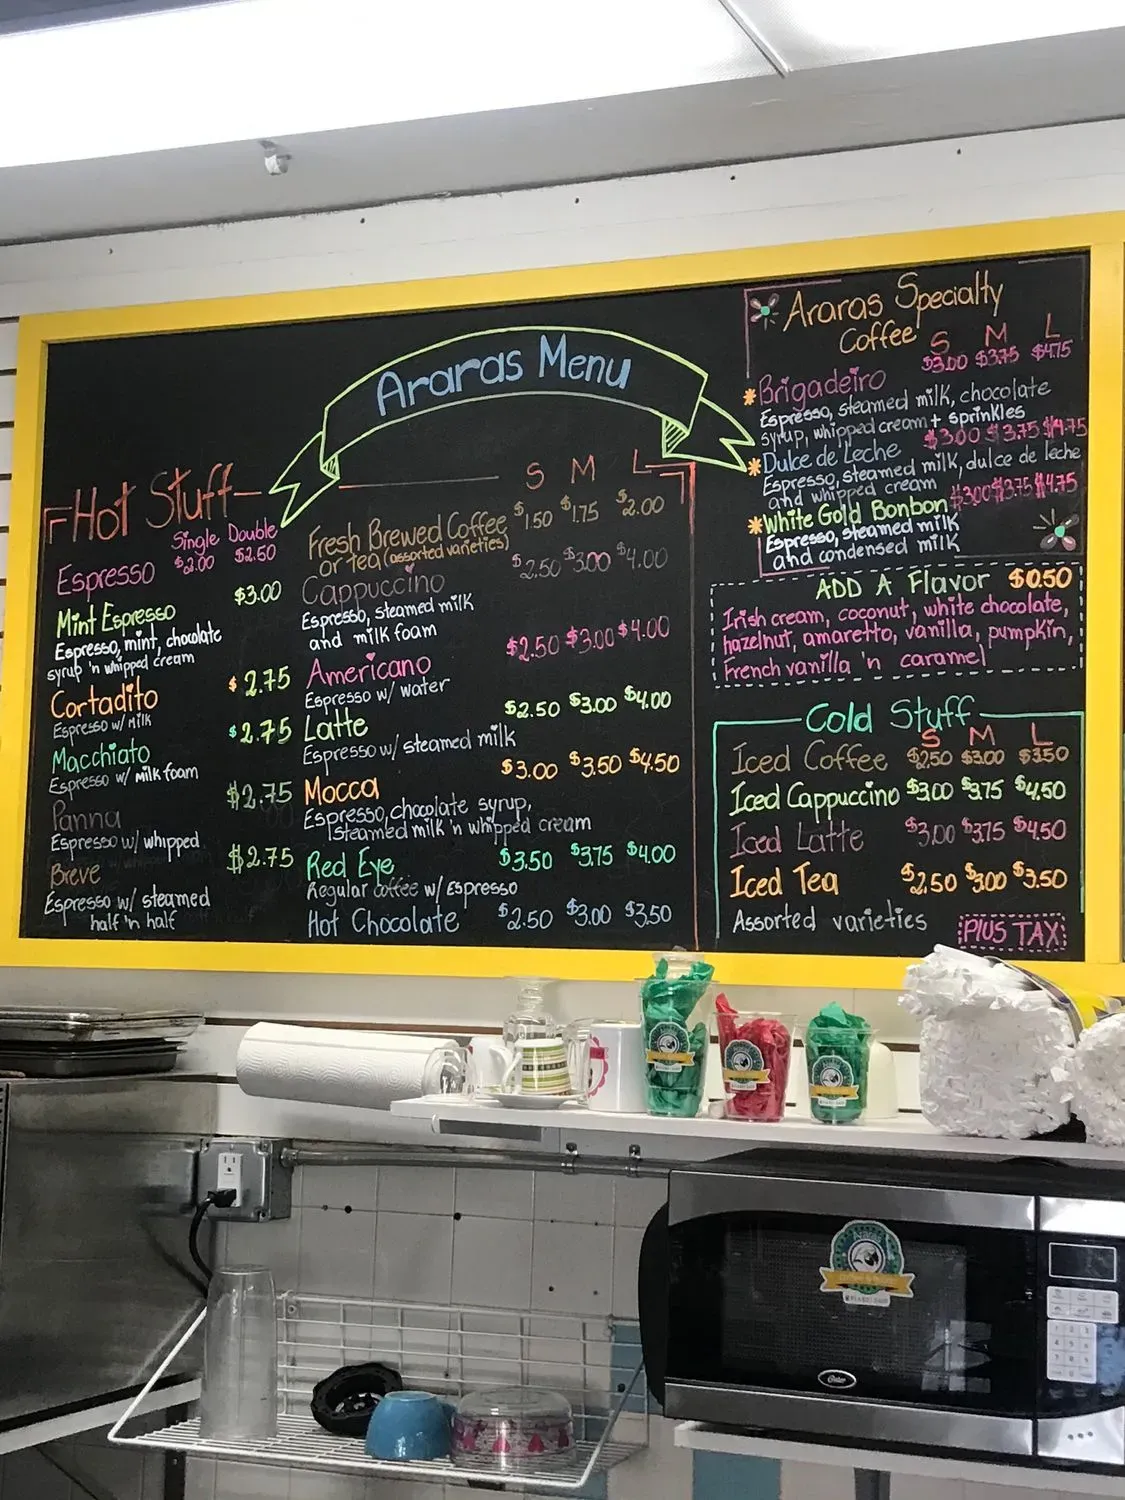 Araras Menu
Hot Stuff
Single Double
Espresso $2.00 $2.50
Mint Espresso $3.00
Espresso, mint, chocolate
syrup 'n whipped cream
Cortadito $2.75
Espresso w/ milk
Macchiato $2.75
Espresso w/ milk foam
Panna $2.75
Espresso w/ whipped
Breve $2.75
Espresso w/ steamed
half 'n half
S M L
Fresh Brewed Coffee $1.50 $1.75 $2.00
or tea (assorted varieties)
Cappuccino $2.50 $3.00 $4.00
Espresso, steamed milk
and milk foam
Americano $2.50 $3.00 $4.00
Espresso w/ water
Latte $2.50 $3.00 $4.00
Espresso w/ steamed milk
Mocca $3.00 $3.50 $4.50
Espresso, chocolate syrup,
steamed milk 'n whipped cream
Red Eye $3.50 $3.75 $4.00
Regular coffee w/ Espresso
Hot Chocolate $2.50 $3.00 $3.50
Araras Specialty
Coffee S M L
$3.00 $3.75 $4.75
*Brigadeiro
Espresso, steamed milk, chocolate
syrup, whipped cream + sprinkles
*Dulce de Leche $3.00 $3.75 $4.75
Espresso, steamed milk, dulce de leche
and whipped cream
*White Gold Bonbon $3.00 $3.75 $4.75
Espresso, steamed milk
and condensed milk
ADD A Flavor $0.50
Irish cream, coconut, white chocolate,
hazelnut, amaretto, vanilla, pumpkin,
French vanilla 'n caramel
Cold Stuff
S M L
Iced Coffee $2.50 $3.00 $3.50
Iced Cappuccino $3.00 $3.75 $4.50
Iced Latte $3.00 $3.75 $4.50
Iced Tea $2.50 $3.00 $3.50
Assorted varieties
PlUS TAX
Oster